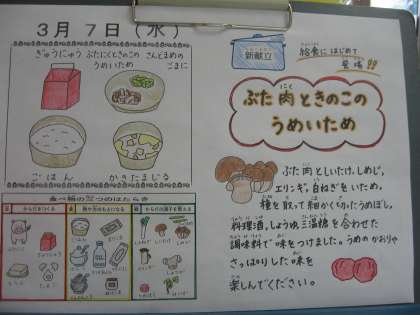 3月7日(水)
ぎゅうにゅう
ぶたにくときのこの
うめいため
さんどまめの
ごまに
ごはん
かきたまじる
食べ物の三つのはたらき
新献立
給食にはじめて
登場!!
ぶた肉ときのこの
うめいため
ぶた肉としいたけ、しめじ、
エリンギ、白ねぎをいため、
種を取って細かく切ったうめぼし、
料理酒、しょうゆ、三温糖を合わせた
調味料で味をつけました。うめのかおりや
さっぱりした味を
楽しんでください。